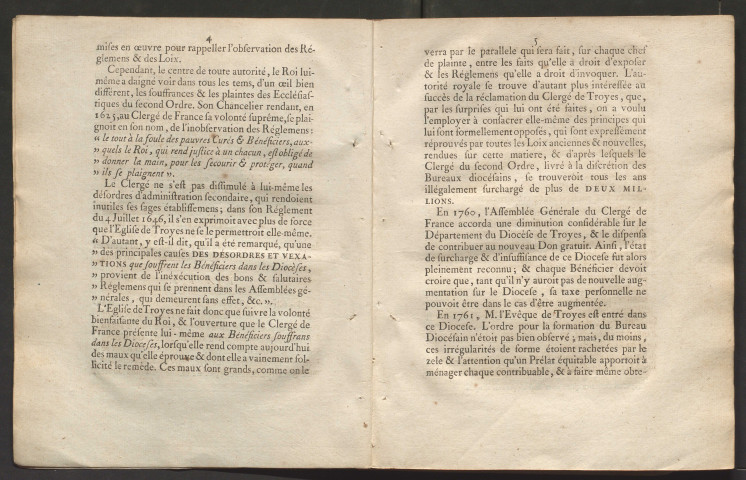 4
mises en œuvre pour rappeller l'observation des Ré-
glemens & des Loix.
Cependant, le centre de toute autorité, le Roi lui-
même a daigné voir dans tous les tems, d'un œil bien
différent, les souffrances & les plaintes des Ecclésias-
tiques du second Ordre. Son Chancelier rendant, en
1625, au Clergé de France sa volonté suprême, se plai-
gnoit en son nom, de l'inobservation des Réglemens:
« le tout à la foule des pauvres Curés & Bénéficiers, aux-
» quels le Roi, qui rend justice à un chacun, est obligé de
» donner la main, pour les secourir & protéger, quand
» ils se plaignent ».
Le Clergé ne s'est pas dissimulé à lui-même les
désordres d'administration secondaire, qui rendoient
inutiles ses sages établissemens; dans son Réglement
du 4 Juillet 1646, il s'en exprimoit avec plus de force
que l'Eglise de Troyes ne se le permettroit elle-même.
« D'autant, y est-il dit, qu'il a été remarqué, qu'une
» des principales causes DES DÉSORDRES ET VEXA-
» TIONS que souffrent les Bénéficiers dans les Diocèses,
» provient de l'inéxécution des bons & salutaires
» Réglemens qui se prennent dans les Assemblées gé-
» nérales, qui demeurent sans effet, &c. ».
L'Eglise de Troyes ne fait donc que suivre la volonté
bienfaisante du Roi, & l'ouverture que le Clergé de
France présente lui-même aux Bénéficiers souffrans
dans les Diocèses, lorsqu'elle rend compte aujourd'hui
des maux qu'elle éprouve & dont elle a vainement sol-
licité le remède. Ces maux sont grands, comme on le
5
verra par le parallele qui sera fait, sur chaque chef
de plainte, entre les faits qu'elle a droit d'exposer
& les Réglemens qu'elle a droit d'invoquer. L'au-
torité royale se trouve d'autant plus intéressée au
succès de la réclamation du Clergé de Troyes, que,
par les surprises qui lui ont été faites, on a voulu
l'employer à consacrer elle-même des principes qui
lui sont formellement opposés, qui sont expressément
réprouvés par toutes les Loix anciennes & nouvelles,
rendues sur cette matiere, & d'après lesquels le
Clergé du second Ordre, livré à la discrétion des
Bureaux diocésains, se trouveroit tous les ans
illégalement surchargé de plus de DEUX MIL-
LIONS.
En 1760, l'Assemblée Générale du Clergé de
France accorda une diminution considérable sur le
Département du Diocèse de Troyes, & le dispensa
de contribuer au nouveau Don gratuit. Ainsi, l'état
de surcharge & d'insuffisance de ce Diocese fut alors
pleinement reconnu; & chaque Bénéficier devoit
croire que, tant qu'il n'y auroit pas de nouvelle aug-
mentation sur le Diocese, sa taxe personnelle ne
pouvoit être dans le cas d'être augmentée.
En 1761, M. l'Evêque de Troyes est entré dans
ce Diocese. L'ordre pour la formation du Bureau
Diocésain n'étoit pas bien observé; mais, du moins,
ces irrégularités de forme étoient rachetées par le
zele & l'attention qu'un Prélat équitable apportoit à
ménager chaque contribuable, & à faire même obte-